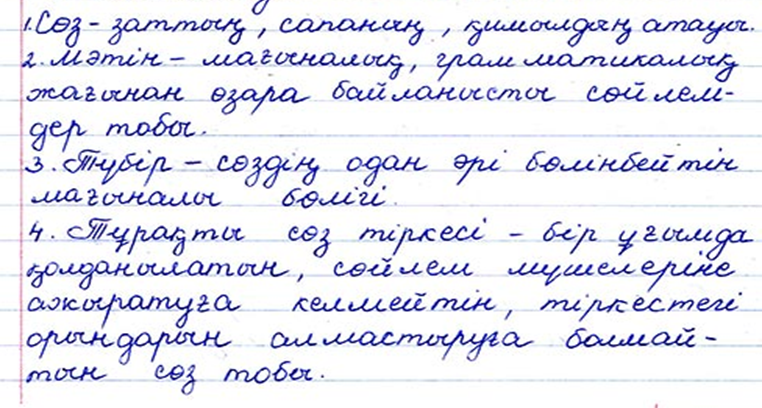 1. Сөз - заттың, сапаның, қимылдың атауы.
2. Мәтін - мағыналық, грамматикалық
жағынан өзара байланысты сөйлем-
дер тобы.
3. Түбір - сөздің одан әрі бөлінбейтін
мағыналы бөлігі.
4. Тұрақты сөз тіркесі - бір ұғымда
қолданылатын, сөйлем мүшелеріне
ажыратуға келмейтін, тіркестегі
орындарын алмастыруға болмай-
тын сөз тобы.